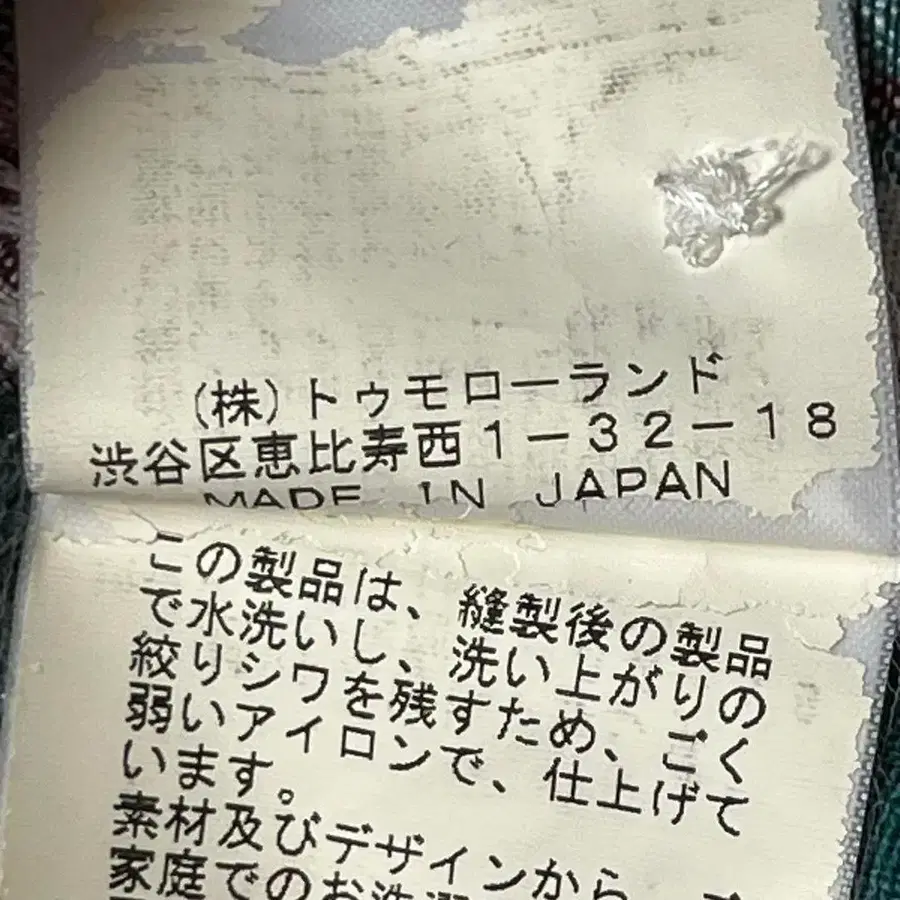 (株)トゥモローランド
渋谷区恵比寿西1-32-18
MADE IN JAPAN
この製品は、縫製後の製品
で水洗いし、洗い上がりの
絞りシワを残すため、ごく
弱いアイロンで、仕上げて
います。
素材及びデザインから、
家庭でのお洗濯